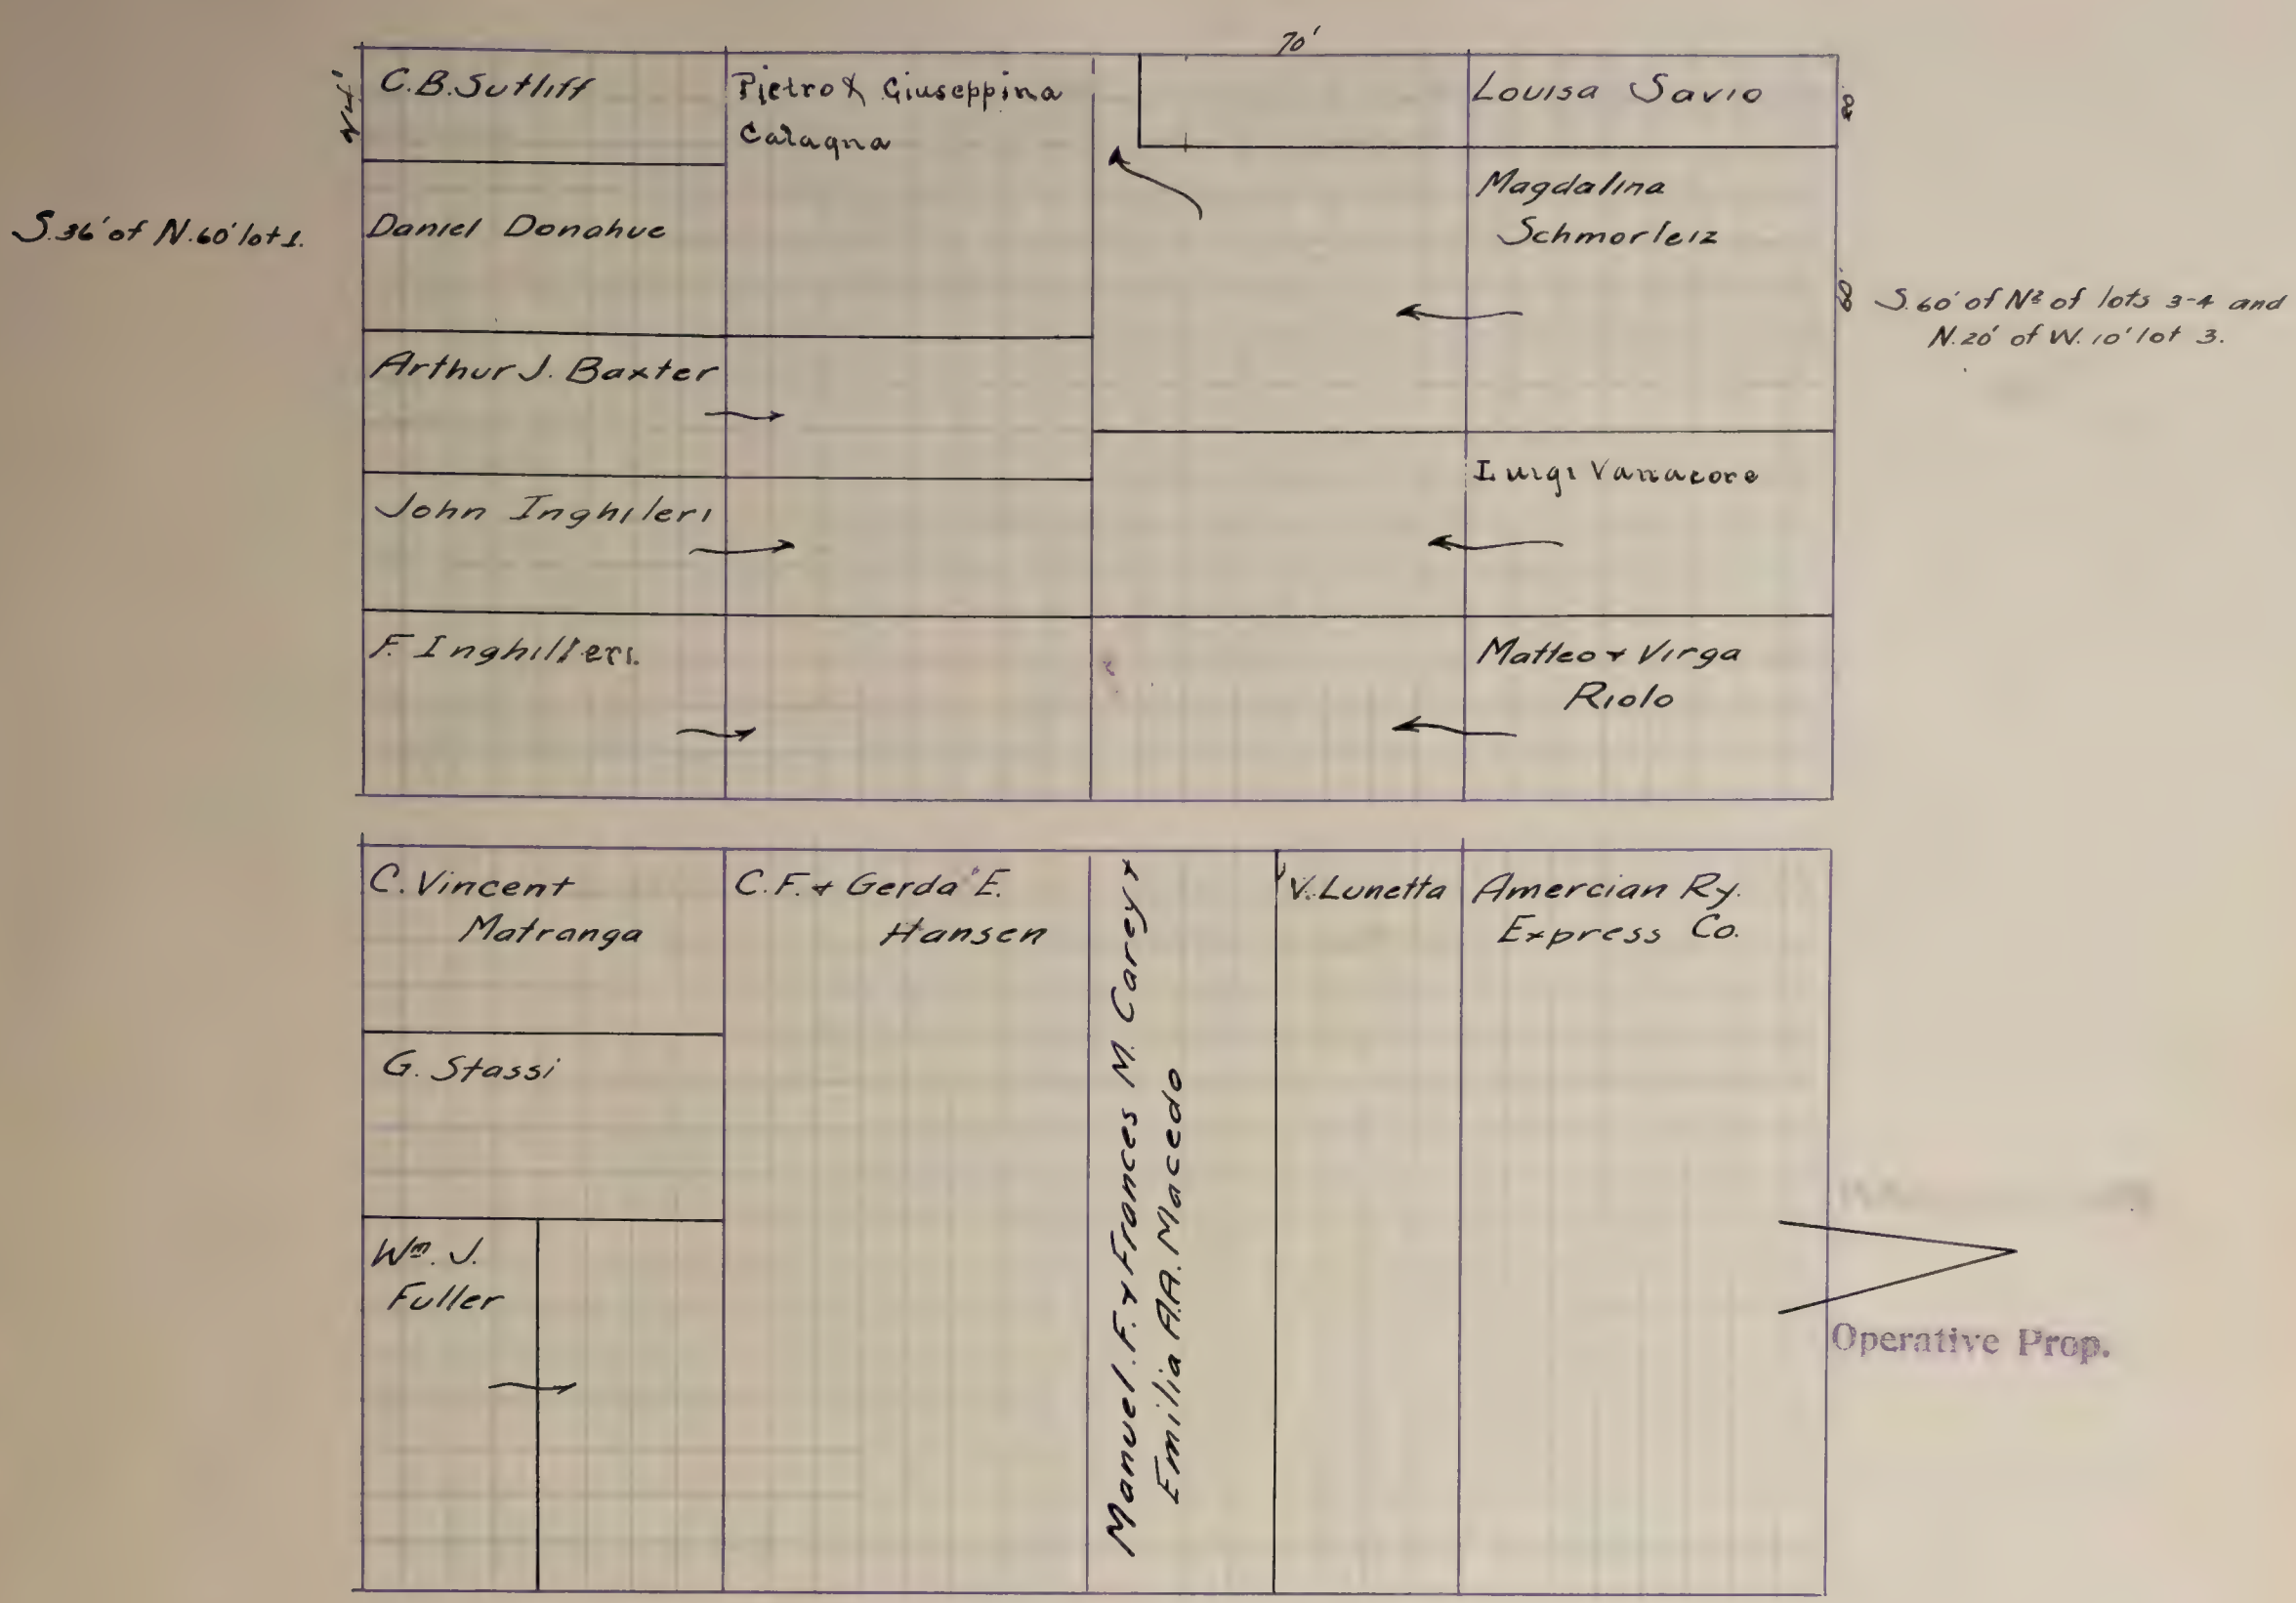 70'
N.24'
C.B.Sutliff
Pietro & Giuseppina
Catagna
Louisa Savio
20'
S.36' of N.60' lot 1.
Daniel Donahue
Magdalina
Schmorleiz
60'
S.60' of N½ of lots 3-4 and
N.20' of W.10' lot 3.
Arthur J. Baxter
John Inghileri
Luigi Vanacore
F. Inghilleri.
Matteo & Virga
Riolo
C. Vincent
Matranga
C.F. & Gerda E.
Hansen
Manuel F. & Frances M. Carey &
Emilia A.A. Macedo
V. Lunetta
Amercian Ry.
Express Co.
G. Stassi
Wm. J.
Fuller
Operative Prop.